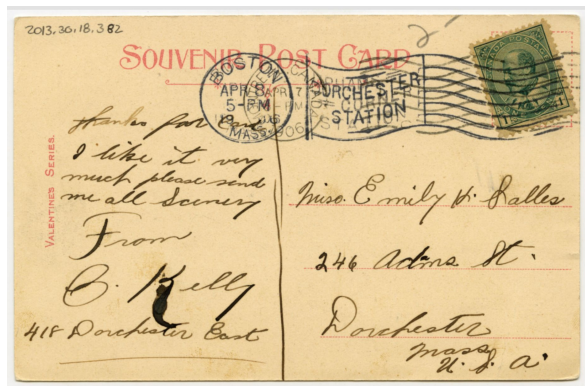 2013.30.18.382
2-
SOUVENIR POST CARD
BOSTON
APR 8
5-PM
MASS.
DORCHESTER
STATION
1 1
VALENTINE'S SERIES.
thanks for Card
I like it very
much please send
me all Scenery
From
C. Kelly
418 Dorchester East
Miss. Emily H. Salles
246 Adms St.
Dorchester
Mass
U. S. A.